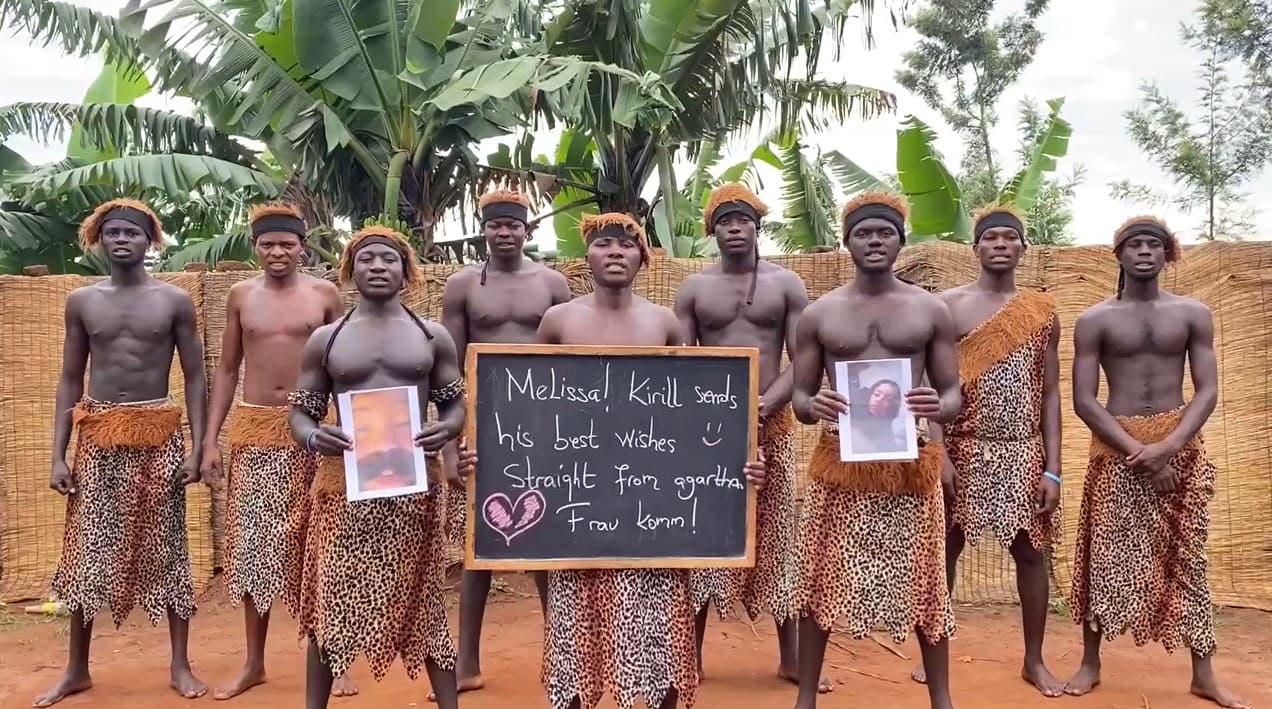 Melissa! Kirill sends
his best wishes
Straight from agarthan
Frau komm!